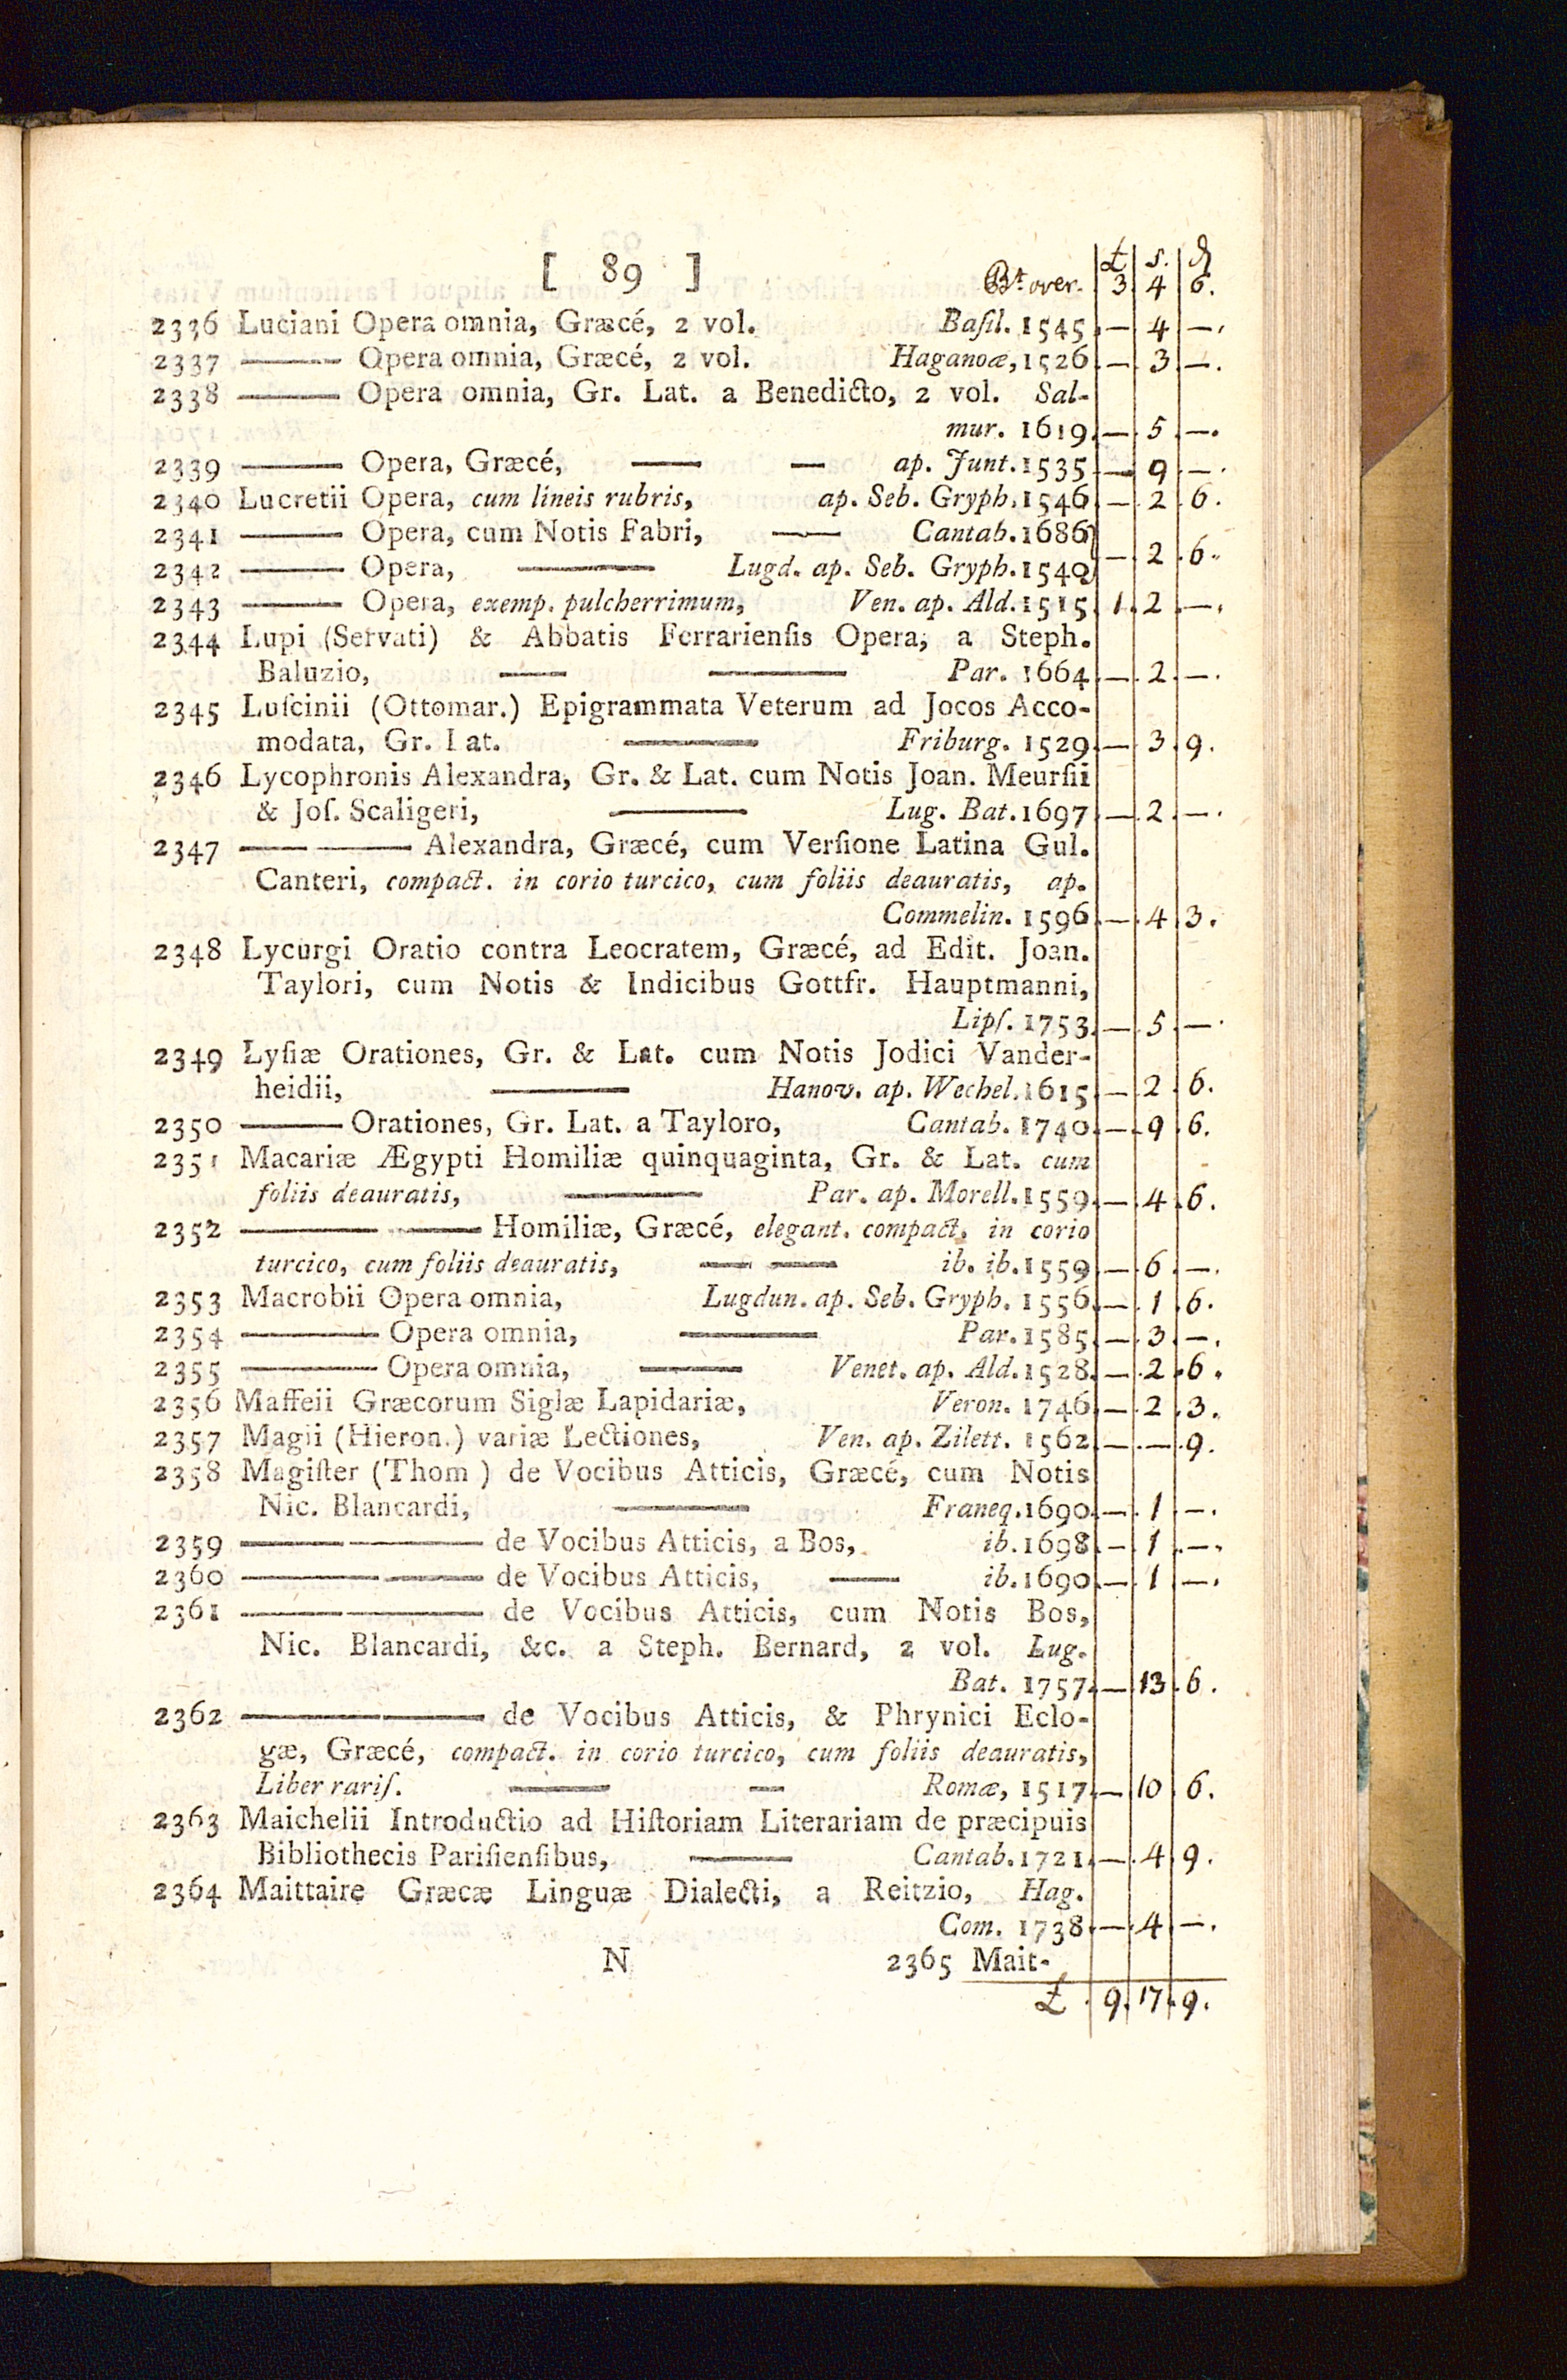 £ s. d
[ 89 ] Bt. over. 3 4 6.
2336 Luciani Opera omnia, Græcé, 2 vol. Baſil. 1545 — 4 —.
2337 —— Opera omnia, Græcé, 2 vol. Haganoæ, 1526 — 3 —.
2338 —— Opera omnia, Gr. Lat. a Benedicto, 2 vol. Sal-
mur. 1619 — 5 —.
2339 —— Opera, Græcé, —— — ap. Junt. 1535 — 9 —.
2340 Lucretii Opera, cum lineis rubris, ap. Seb. Gryph. 1546 — 2 6.
2341 —— Opera, cum Notis Fabri, —— Cantab. 1686
2342 —— Opera, —— Lugd. ap. Seb. Gryph. 1540 — 2 6.
2343 —— Opera, exemp. pulcherrimum, Ven. ap. Ald. 1515 1 2 —.
2344 Lupi (Servati) & Abbatis Ferrarienſis Opera, a Steph.
Baluzio, —— —— Par. 1664 — 2 —.
2345 Luſcinii (Ottomar.) Epigrammata Veterum ad Jocos Acco-
modata, Gr. Lat. —— Friburg. 1529 — 3 9.
2346 Lycophronis Alexandra, Gr. & Lat. cum Notis Joan. Meurſii
& Joſ. Scaligeri, —— Lug. Bat. 1697 — 2 —.
2347 —— —— Alexandra, Græcé, cum Verſione Latina Gul.
Canteri, compact. in corio turcico, cum foliis deauratis, ap.
Commelin. 1596 — 4 3.
2348 Lycurgi Oratio contra Leocratem, Græcé, ad Edit. Joan.
Taylori, cum Notis & Indicibus Gottfr. Hauptmanni,
Lipſ. 1753 — 5 —.
2349 Lyſiæ Orationes, Gr. & Lat. cum Notis Jodici Vander-
heidii, —— Hanov. ap. Wechel. 1615 — 2 6.
2350 —— Orationes, Gr. Lat. a Tayloro, Cantab. 1740 — 9 6.
2351 Macariæ Ægypti Homiliæ quinquaginta, Gr. & Lat. cum
foliis deauratis, —— Par. ap. Morell. 1559 — 4 6.
2352 —— —— Homiliæ, Græcé, elegant. compact. in corio
turcico, cum foliis deauratis, — — ib. ib. 1559 — 6 —.
2353 Macrobii Opera omnia, Lugdun. ap. Seb. Gryph. 1556 — 1 6.
2354 —— Opera omnia, —— Par. 1585 — 3 —.
2355 —— Opera omnia, —— Venet. ap. Ald. 1528 — 2 6.
2356 Maffeii Græcorum Siglæ Lapidariæ, Veron. 1746 — 2 3.
2357 Magii (Hieron.) variæ Lectiones, Ven. ap. Zilett. 1562 — — 9.
2358 Magiſter (Thom ) de Vocibus Atticis, Græcé, cum Notis
Nic. Blancardi, —— Franeq. 1690 — 1 —.
2359 —— —— de Vocibus Atticis, a Bos, ib. 1698 — 1 —.
2360 —— —— de Vocibus Atticis, —— ib. 1690 — 1 —.
2361 —— —— de Vocibus Atticis, cum Notis Bos,
Nic. Blancardi, &c. a Steph. Bernard, 2 vol. Lug.
Bat. 1757 — 13 6.
2362 —— —— de Vocibus Atticis, & Phrynici Eclo-
gæ, Græcé, compact. in corio turcico, cum foliis deauratis,
Liber rariſ. —— — Romæ, 1517 — 10 6.
2363 Maichelii Introductio ad Hiſtoriam Literariam de præcipuis
Bibliothecis Pariſienſibus, —— Cantab. 1721 — 4 9.
2364 Maittaire Græcæ Linguæ Dialecti, a Reitzio, Hag.
Com. 1738 — 4 —.
N 2365 Mait-
£ 9. 17. 9.